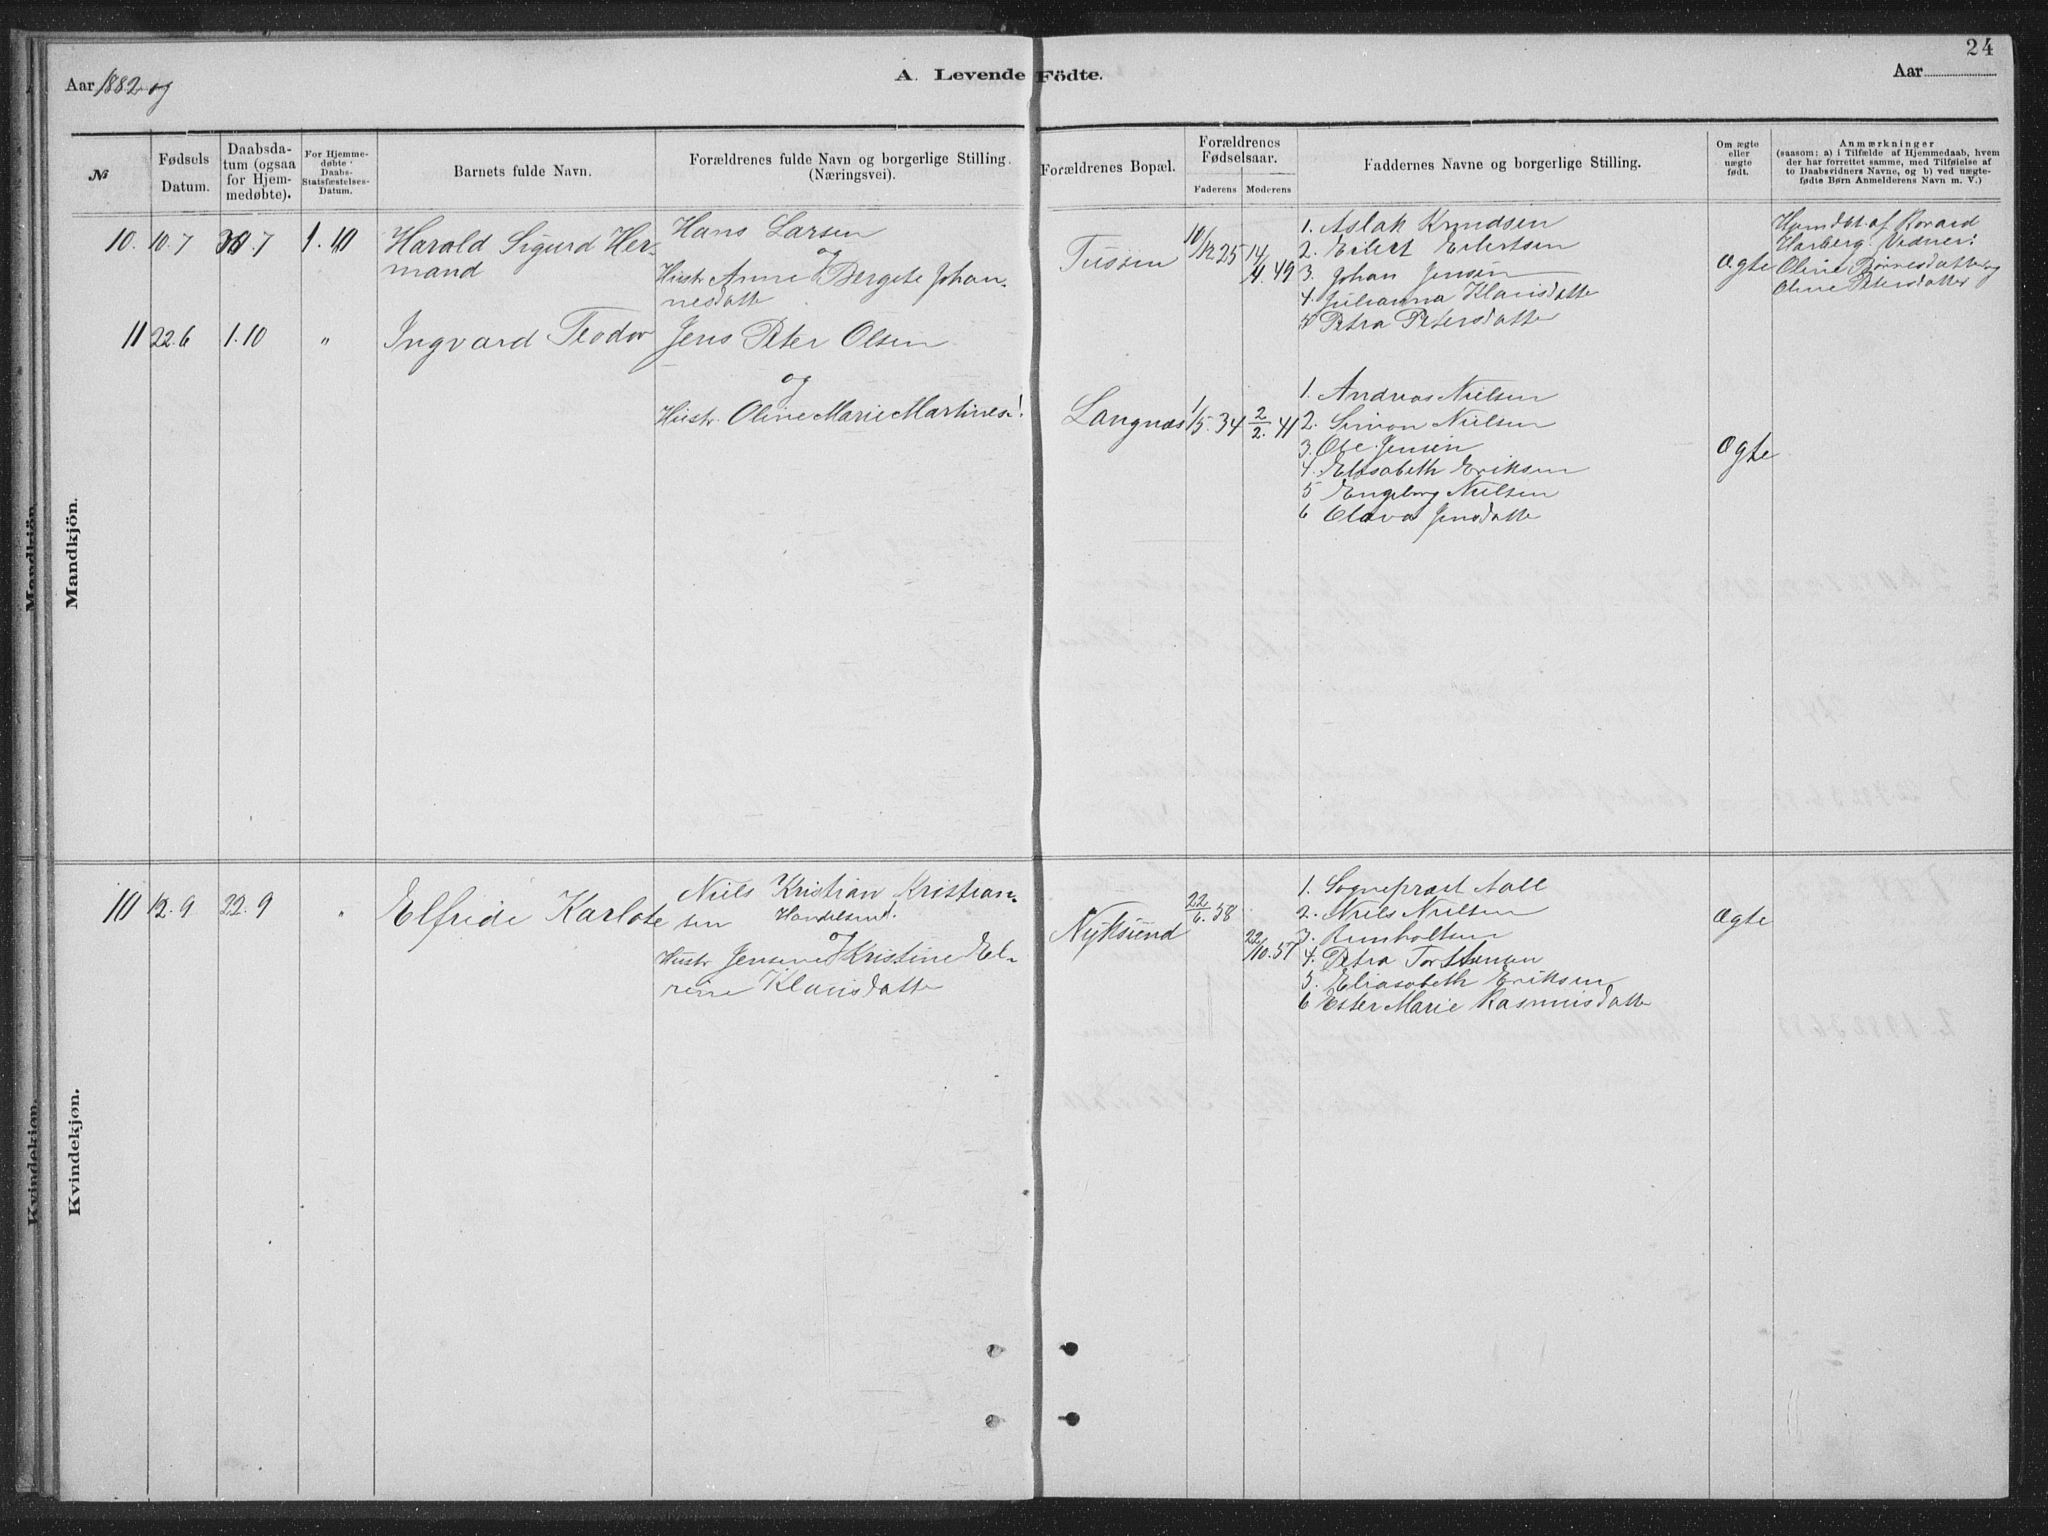 24
Aar 1882 og
A. Levende Födte.
Aar
№
Fødsels Datum.
Daabsdatum (ogsaa for Hjemmedøbte).
For Hjemmedøbte Daabs-Statsfæstelses-Datum.
Barnets fulde Navn.
Forældrenes fulde Navn og borgerlige Stilling. (Næringsvei).
Forældrenes Bopæl.
Forældrenes Fødselsaar.
Faderens
Moderens
Faddernes Navne og borgerlige Stilling.
Om ægte eller uægte født.
Anmærkninger
(saasom: a) i Tilfælde af Hjemmedaab, hvem der har forrettet samme, med Tilføielse af to Daabsvidners Navne, og b) ved uægtefødte Børn Anmelderens Navn m. V.)
Mandkjön.
10. 10.7 30.7 1.10 Harald Sigurd Her-
mand
Hans Larsen
og
Hustr Anne Bergete Johan-
nesdatte
Tussen
10/12 25 14/4. 49
1. Aslak Knudsen
2. Eilert Eilertsen
3. Johan Jensen
4. Julianna Klausdatte
5 Petra Petersdatte
Ægte
Hjemdøt af
Harberg. Vidner:
Oline og
Oline Petersdatter
11 22.6 1.10 " Ingvard Teodor
Jens Peter Olsen
og
Hustr. Oline Marie Martinesd.
Langnæs 1/5. 34 2/2. 41
1. Andreas Nielsen
2. Simon Nielsen
3. Ole Jensen
4. Elisabeth Eriksen
5 Engeborg Nielsen
6 Olava Jensdatte
Ægte
Kvindekjøn.
10 12.9 22.9 " Elfride Karlote
Niels Kristian Kristian-
sen Handelsmd.
og
Hustr Jensine Kristine El-
rine Klausdatte
Nyksund
22/6. 58
22/10. 57
1. Sogneprest Aall
2. Niels Nielsen
3. Rinholtsen
4. Petra Torstensen
5. Eliasabeth Eriksen
6 Ester Marie Rasmusdatte
Ægte